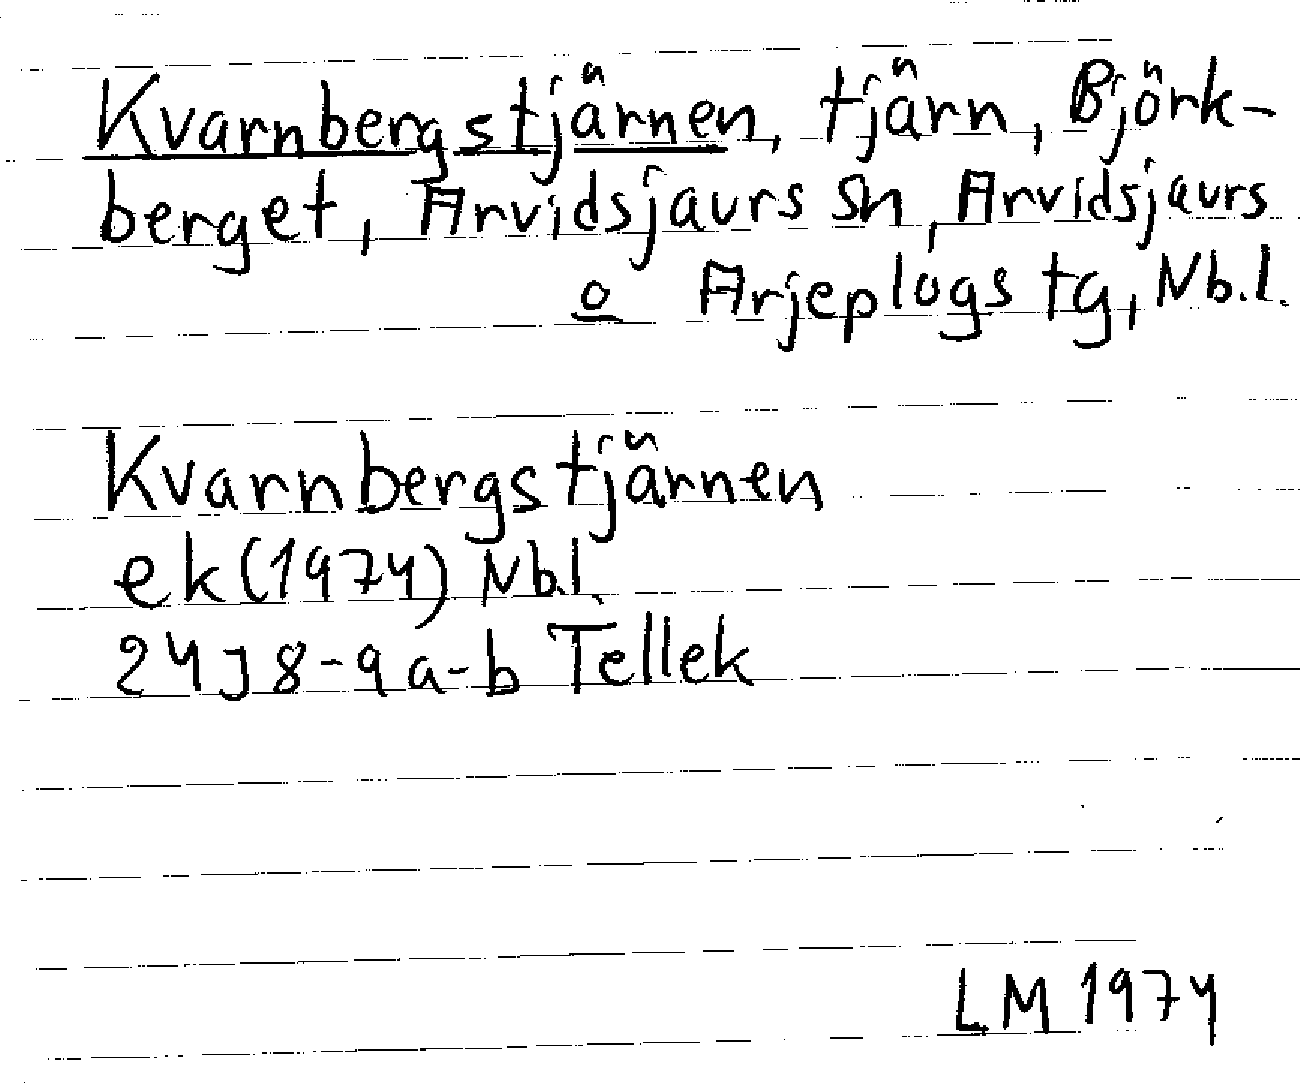 Kvarnbergstjärnen, tjärn, Björk-
berget, Arvidsjaurs sn, Arvidsjaurs
o Arjeplogs tg, Nb.l.
Kvarnbergstjärnen
ek(1974) Nb.l.
24J 8-9 a-b Tellek
LM 1974